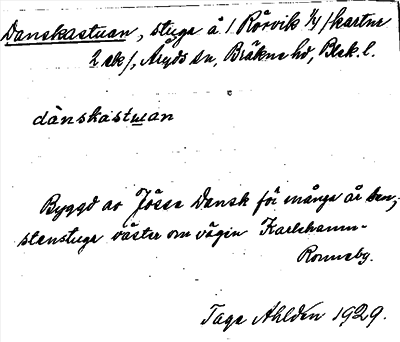 Danskastuan, stuga å 1 Rörvik 1/4 /kartna
2 sk/, Åryds sn, Bräkne hd, Blek. l.
dànskastuan
Byggd av Jöns Dansk för många år sen;
stenstuga väster om vägen Karlshamn-
Ronneby.
Tage Ahldén 1929.